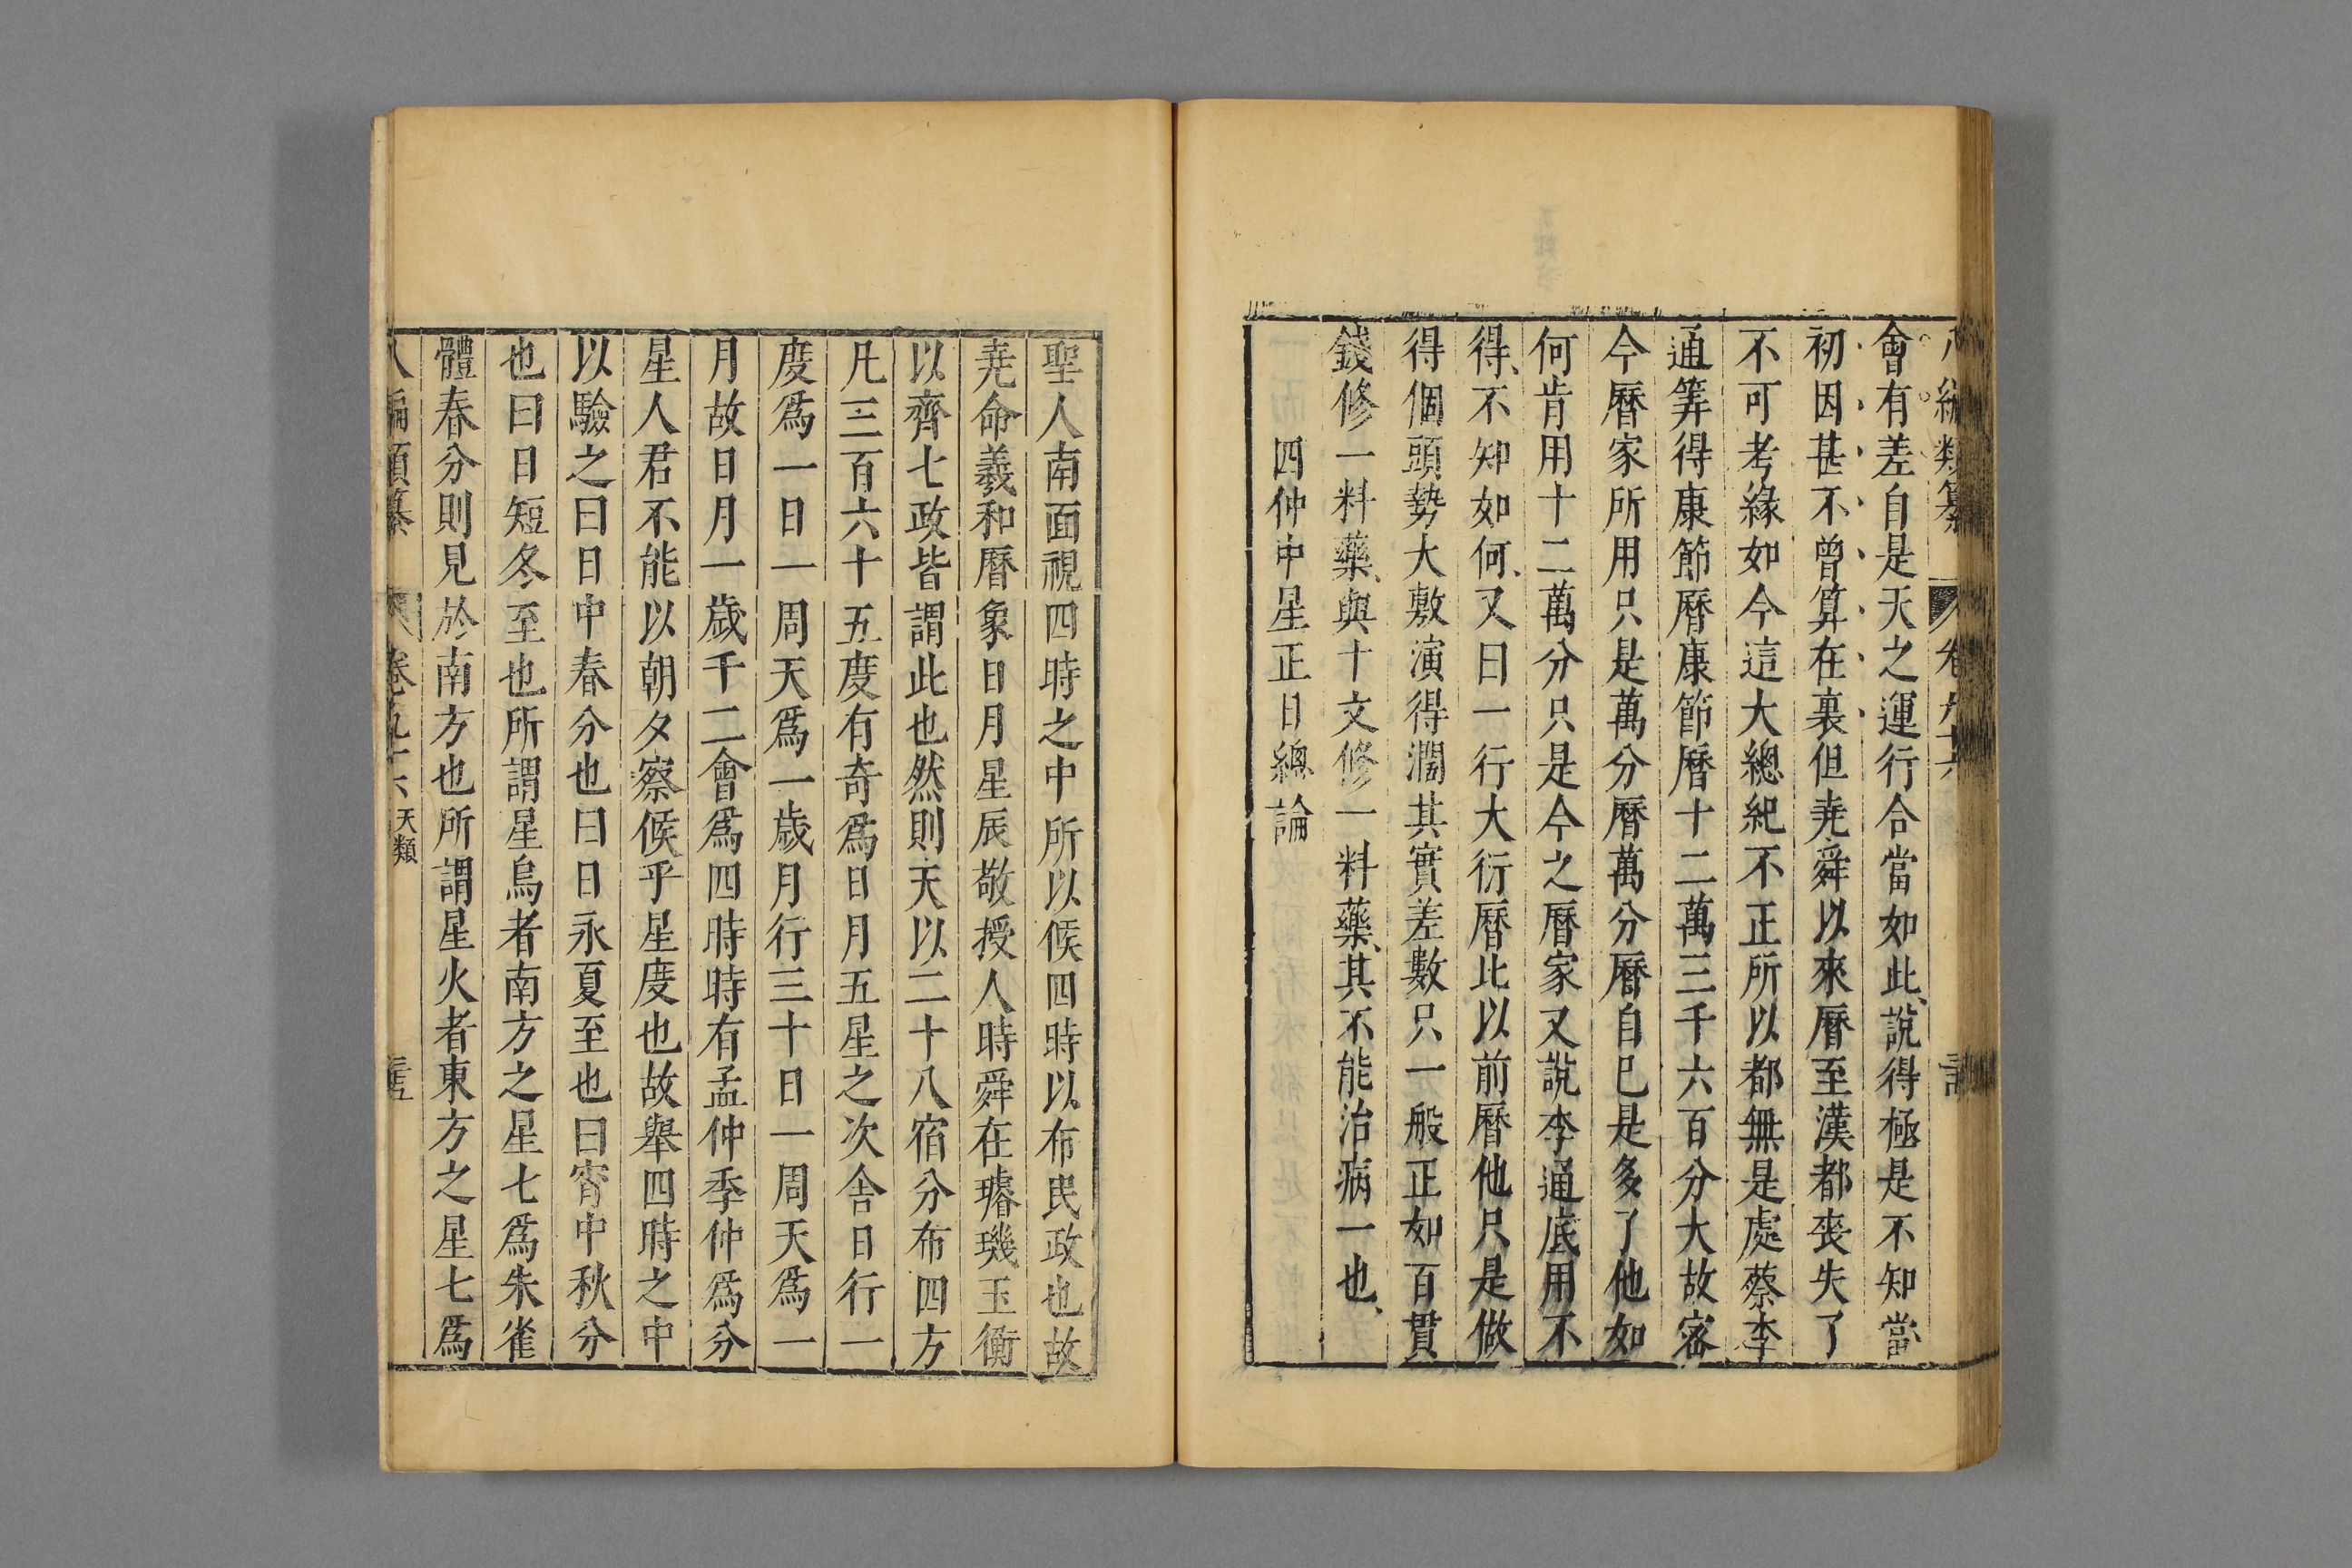 編類纂 卷九十六
會有差自是天之運行合當如此、說得極是不知當
初因甚不曾算在裏但尭舜以來曆至漢都喪失了
不可考緣如今這大總紀不正所以都無是處蔡李
通筭得康節曆康節曆十二萬三千六百分大故密
今曆家所用只是萬分曆萬分曆自巳是多了他如
何肯用十二萬分只是今之曆家又說李通底用不
得、不知如何、又曰一行大衍曆比以前曆他只是做
得個頭勢大敷演得濶其實差數只一般正如百貫
錢修一料藥、與十文修一料藥、其不能治病一也、
四仲中星正日總論
聖人南面視四時之中所以候四時以布民政也故
尭命羲和曆象日月星辰敬授人時舜在璿璣玉衡
以齊七政皆謂此也然則天以二十八宿分布四方
凡三百六十五度有奇爲日月五星之次舍日行一
度爲一日一周天爲一歲月行三十日一周天爲一
月故日月一歲千二會爲四時時有孟仲季仲爲分
星人君不能以朝夕察候乎星度也故舉四時之中
以驗之曰日中春分也曰日永夏至也曰宵中秋分
也曰日短冬至也所謂星鳥者南方之星七爲朱雀
體春分則見於南方也所謂星火者東方之星七爲
八編類纂 卷九十六 天類